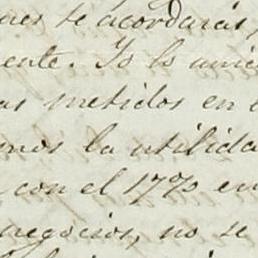 te acordarás,
ente. Yo lo único
metidos en
mos la utilida
con el 17% en
negocios, no se